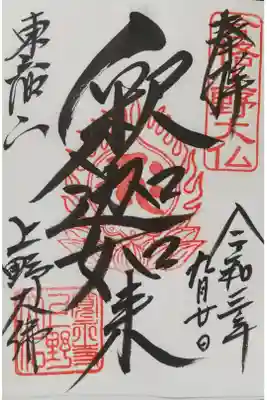 奉拝
上野大仏
令和三年
九月廿日
釈迦如来
東叡山
上野大佛